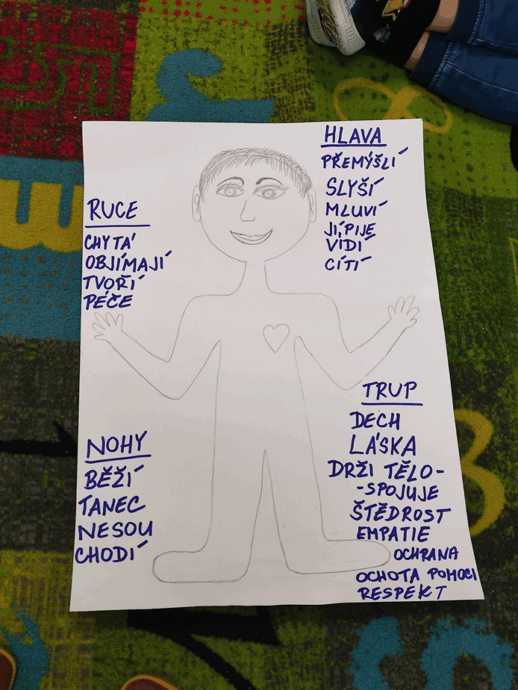 HLAVA
PŘEMÝŠLÍ
SLYŠÍ
MLUVÍ
JÍ, PIJE
VIDÍ
CÍTÍ
RUCE
CHYTÁ
OBJÍMAJÍ
TVOŘÍ
PEČE
NOHY
BĚŽÍ
TANEC
NESOU
CHODÍ
TRUP
DECH
LÁSKA
DRŽI TĚLO-
-SPOJUJE
ŠTĚDROST
EMPATIE
OCHRANA
OCHOTA POMOCI
RESPEKT